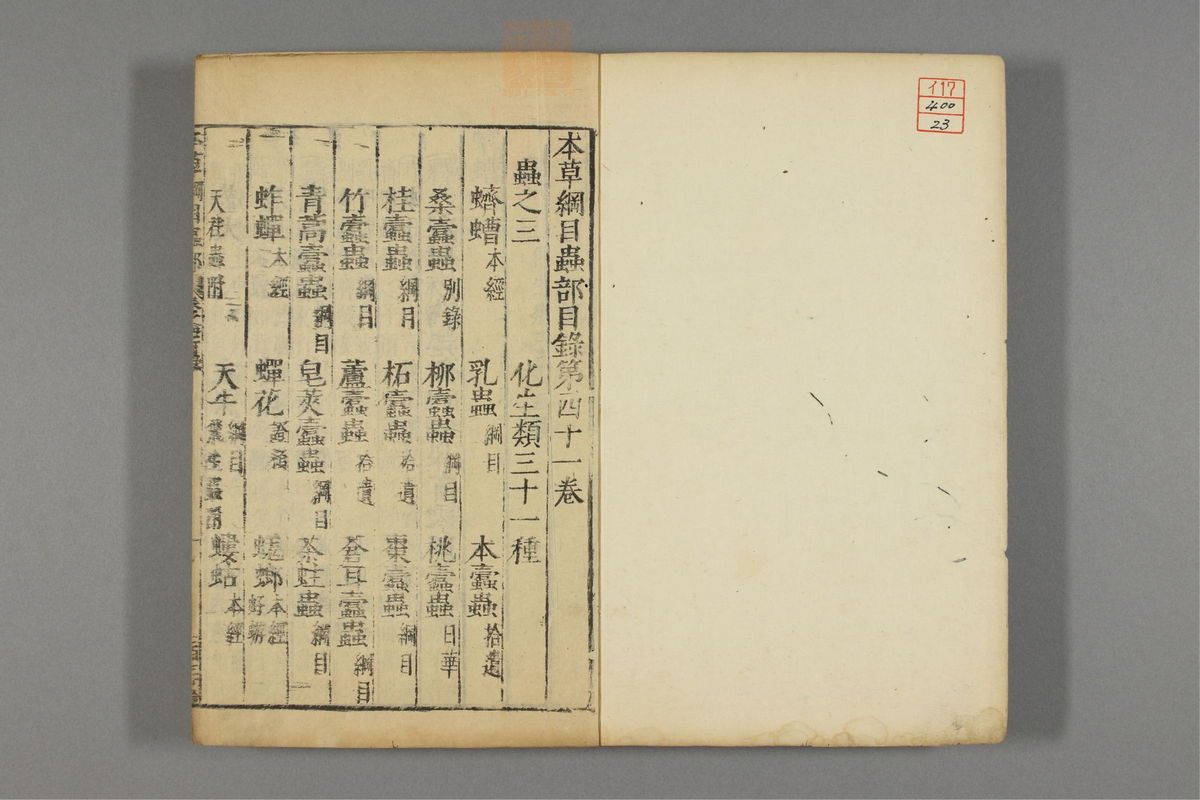 117
400
23
本草綱目蟲部目錄第四十一卷
蟲之三 化生類三十一種
蠐螬本經 乳蟲綱目 本蠹蟲拾遺
桑蠹蟲別錄 柳蠹蟲綱目 桃蠹蟲日華
桂蠹蟲綱目 柘蠹蟲拾遺 棗蠹蟲綱目
竹蠹蟲綱目 蘆蠹蟲拾遺 蒼耳蠹蟲綱目
青蒿蠹蟲綱目 皂莢蠹蟲綱目 茶蛀蟲綱目
蚱蟬本經 蟬花證類 蜣螂本經
天牛綱目 螻蛄本經